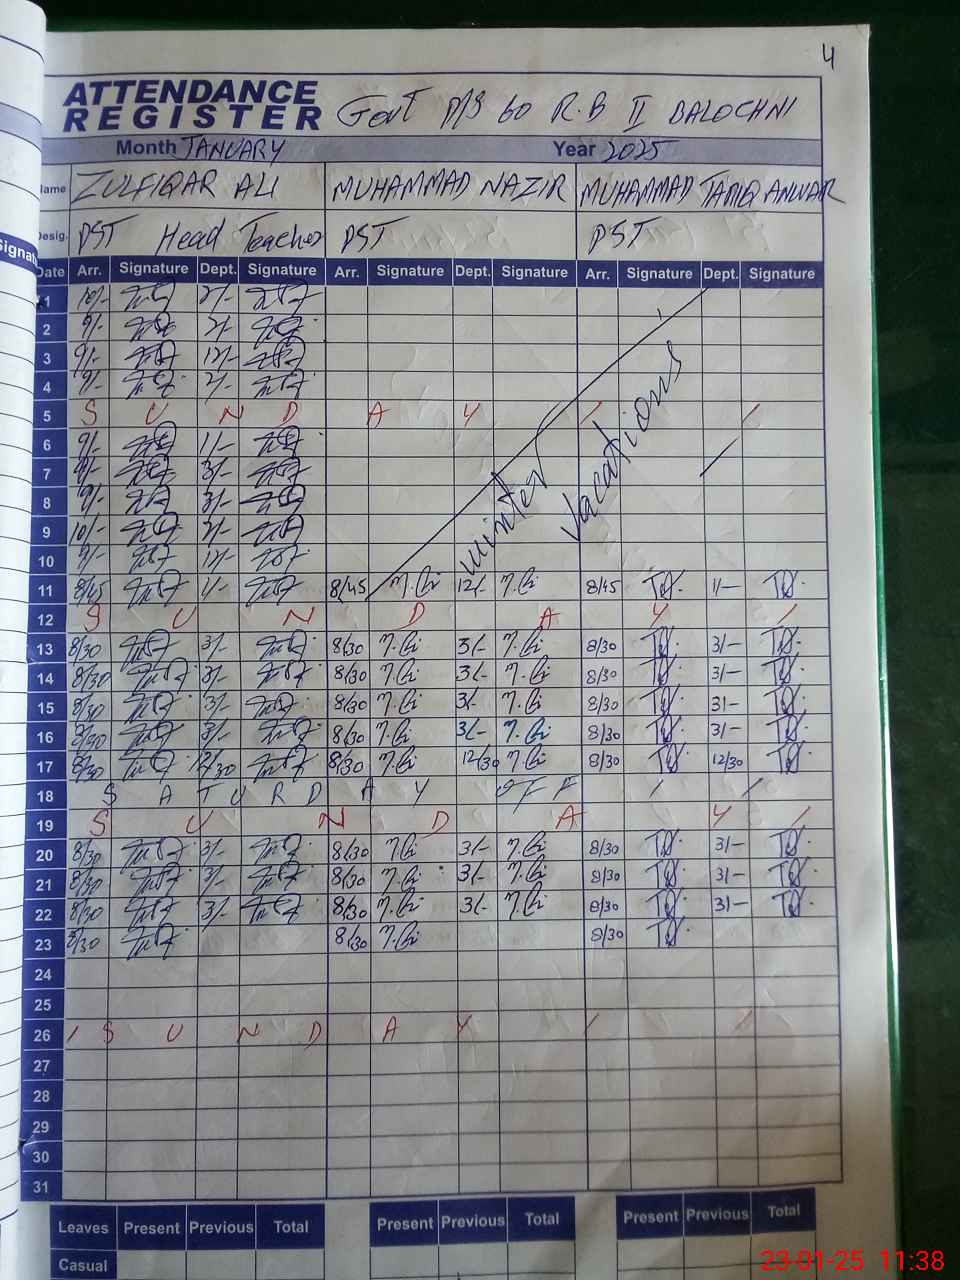 4
ATTENDANCE
REGISTER Govt P/S 60 R.B II BALOCHNI
Month JANUARY Year 2025
Name ZULFIQAR ALI MUHAMMAD NAZIR MUHAMMAD TARIQ ANWAR
Desig. PST Head Teacher PST PST
Signat
Date Arr. Signature Dept. Signature Arr. Signature Dept. Signature Arr. Signature Dept. Signature
1 10/- 2/-
2 9/- 2/-
3 9/- 12/-
4 9/- 2/-
5 S U N D A Y / /
6 9/- 1/-
7 9/- 3/-
8 9/- 3/-
9 10/- 2/-
10 9/- 12/-
winter vacations
11 8/45 1/- 8/45 12/- 8/45 1/-
12 S U N D A Y /
13 8/30 3/- 8/30 3/- 8/30 3/-
14 8/30 3/- 8/30 3/- 8/30 3/-
15 8/30 3/- 8/30 3/- 8/30 3/-
16 8/30 3/- 8/30 3/- 8/30 3/-
17 8/30 12/30 8/30 12/30 8/30 12/30
18 S A T U R D A Y OFF / /
19 S U N D A Y /
20 8/30 3/- 8/30 3/- 8/30 3/-
21 8/30 3/- 8/30 3/- 8/30 3/-
22 8/30 3/- 8/30 3/- 8/30 3/-
23 8/30 8/30 8/30
24
25
26 / S U N D A Y / /
27
28
29
30
31
Leaves Present Previous Total Present Previous Total Present Previous Total
Casual
23-01-25 11:38